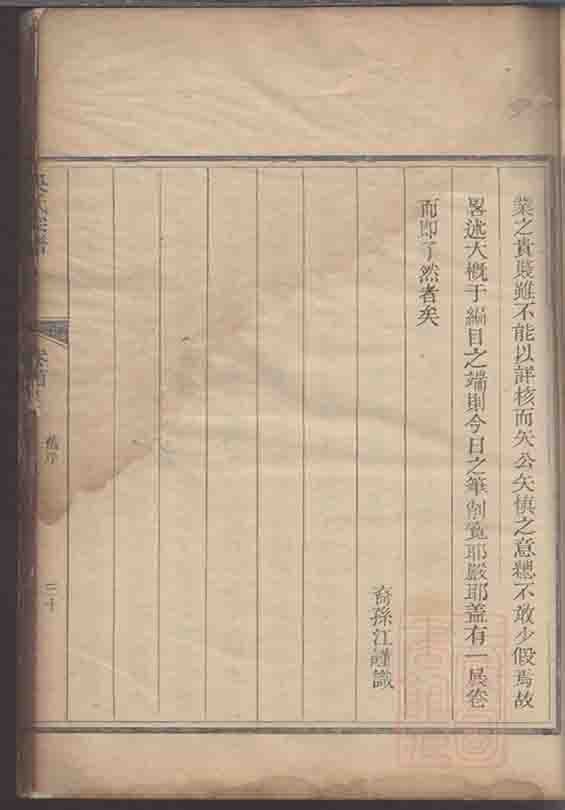 業之貴賤雖不能以詳核而矢公矢慎之意總不敢少假焉故
畧述大概于編目之端則今日之筆削寬耶嚴耶蓋有一展卷
而即了然者矣
裔孫江謹識
舊序
三十